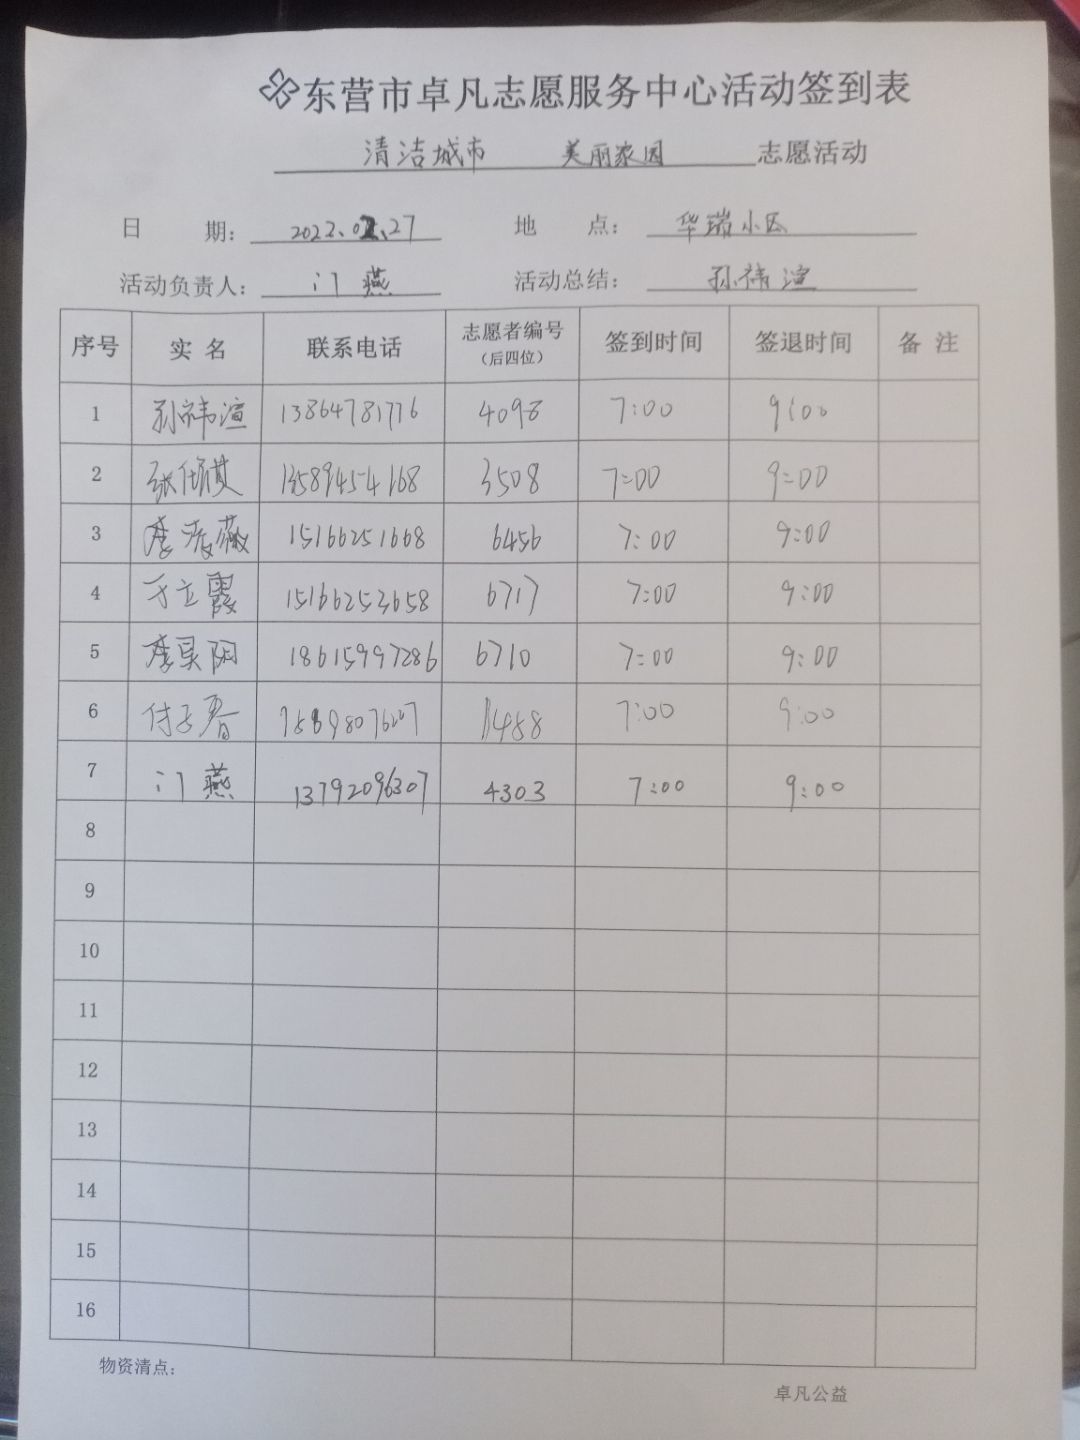 东营市卓凡志愿服务中心活动签到表
清洁城市 美丽家园 志愿活动
日 期： 2022.02.27 地 点： 华瑞小区
活动负责人： 门燕 活动总结： 孙祎渲
序号 实 名 联系电话 志愿者编号（后四位） 签到时间 签退时间 备 注
1 孙祎渲 13864781776 4098 7:00 9:00
2 13589454168 3508 7:00 9:00
3 李凌薇 15166251668 6456 7:00 9:00
4 于立霞 15166253658 6717 7:00 9:00
5 李昊阳 18615997286 6710 7:00 9:00
6 付子春 1458 7:00 9:00
7 门燕 13792096307 4303 7:00 9:00
8
9
10
11
12
13
14
15
16
物资清点：
卓凡公益